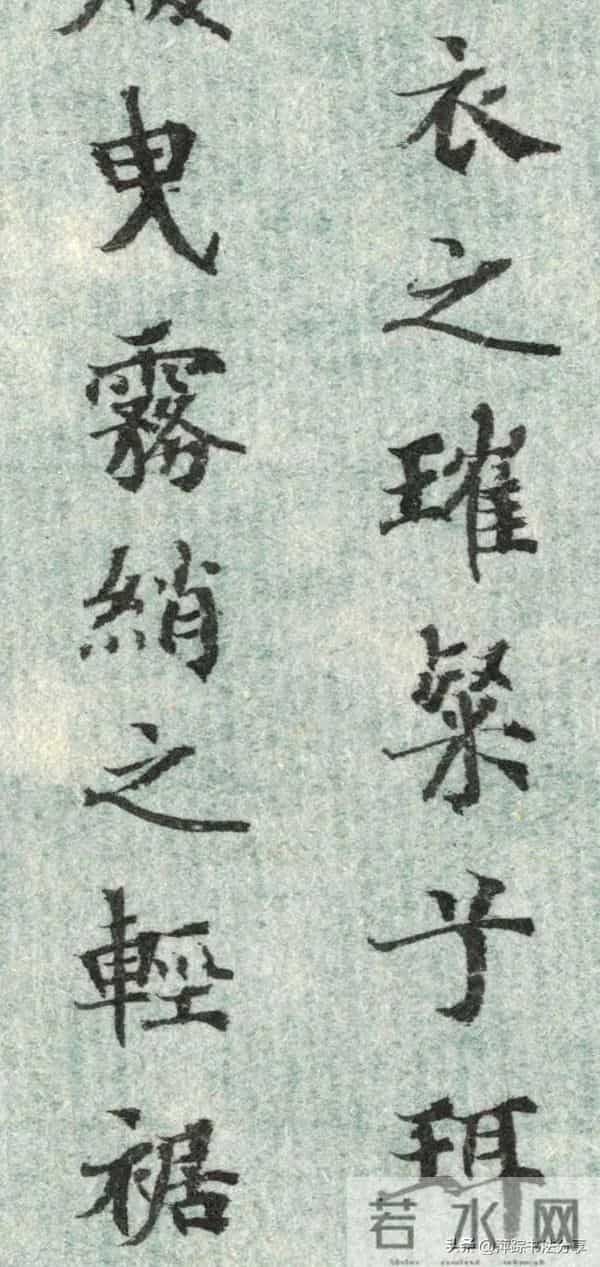 衣之璀粲兮珥
曳霧綃之輕裾
若水网
头条@萍踪书法分享